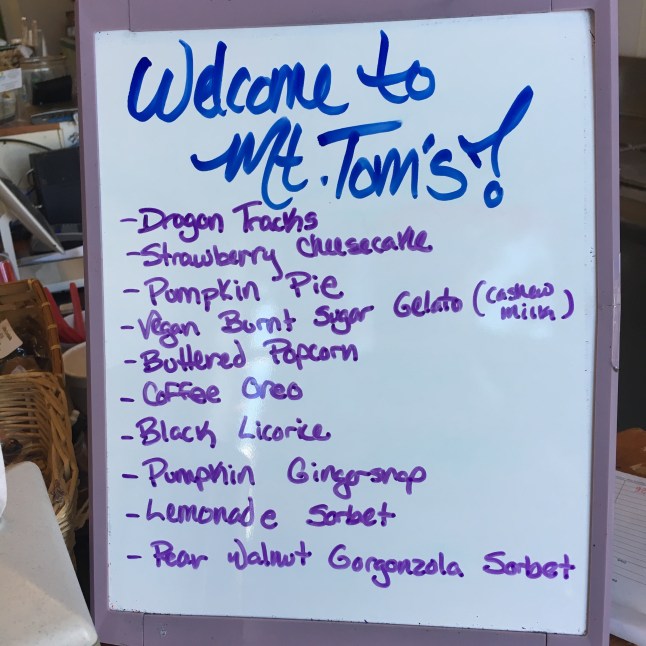 Welcome to
Mt. Tom's!
- Dragon Tracks
- Strawberry Cheesecake
- Pumpkin Pie
- Vegan Burnt Sugar Gelato (cashew milk)
- Buttered Popcorn
- Coffee Oreo
- Black Licorice
- Pumpkin Gingersnap
- Lemonade Sorbet
- Pear Walnut Gorgonzola Sorbet